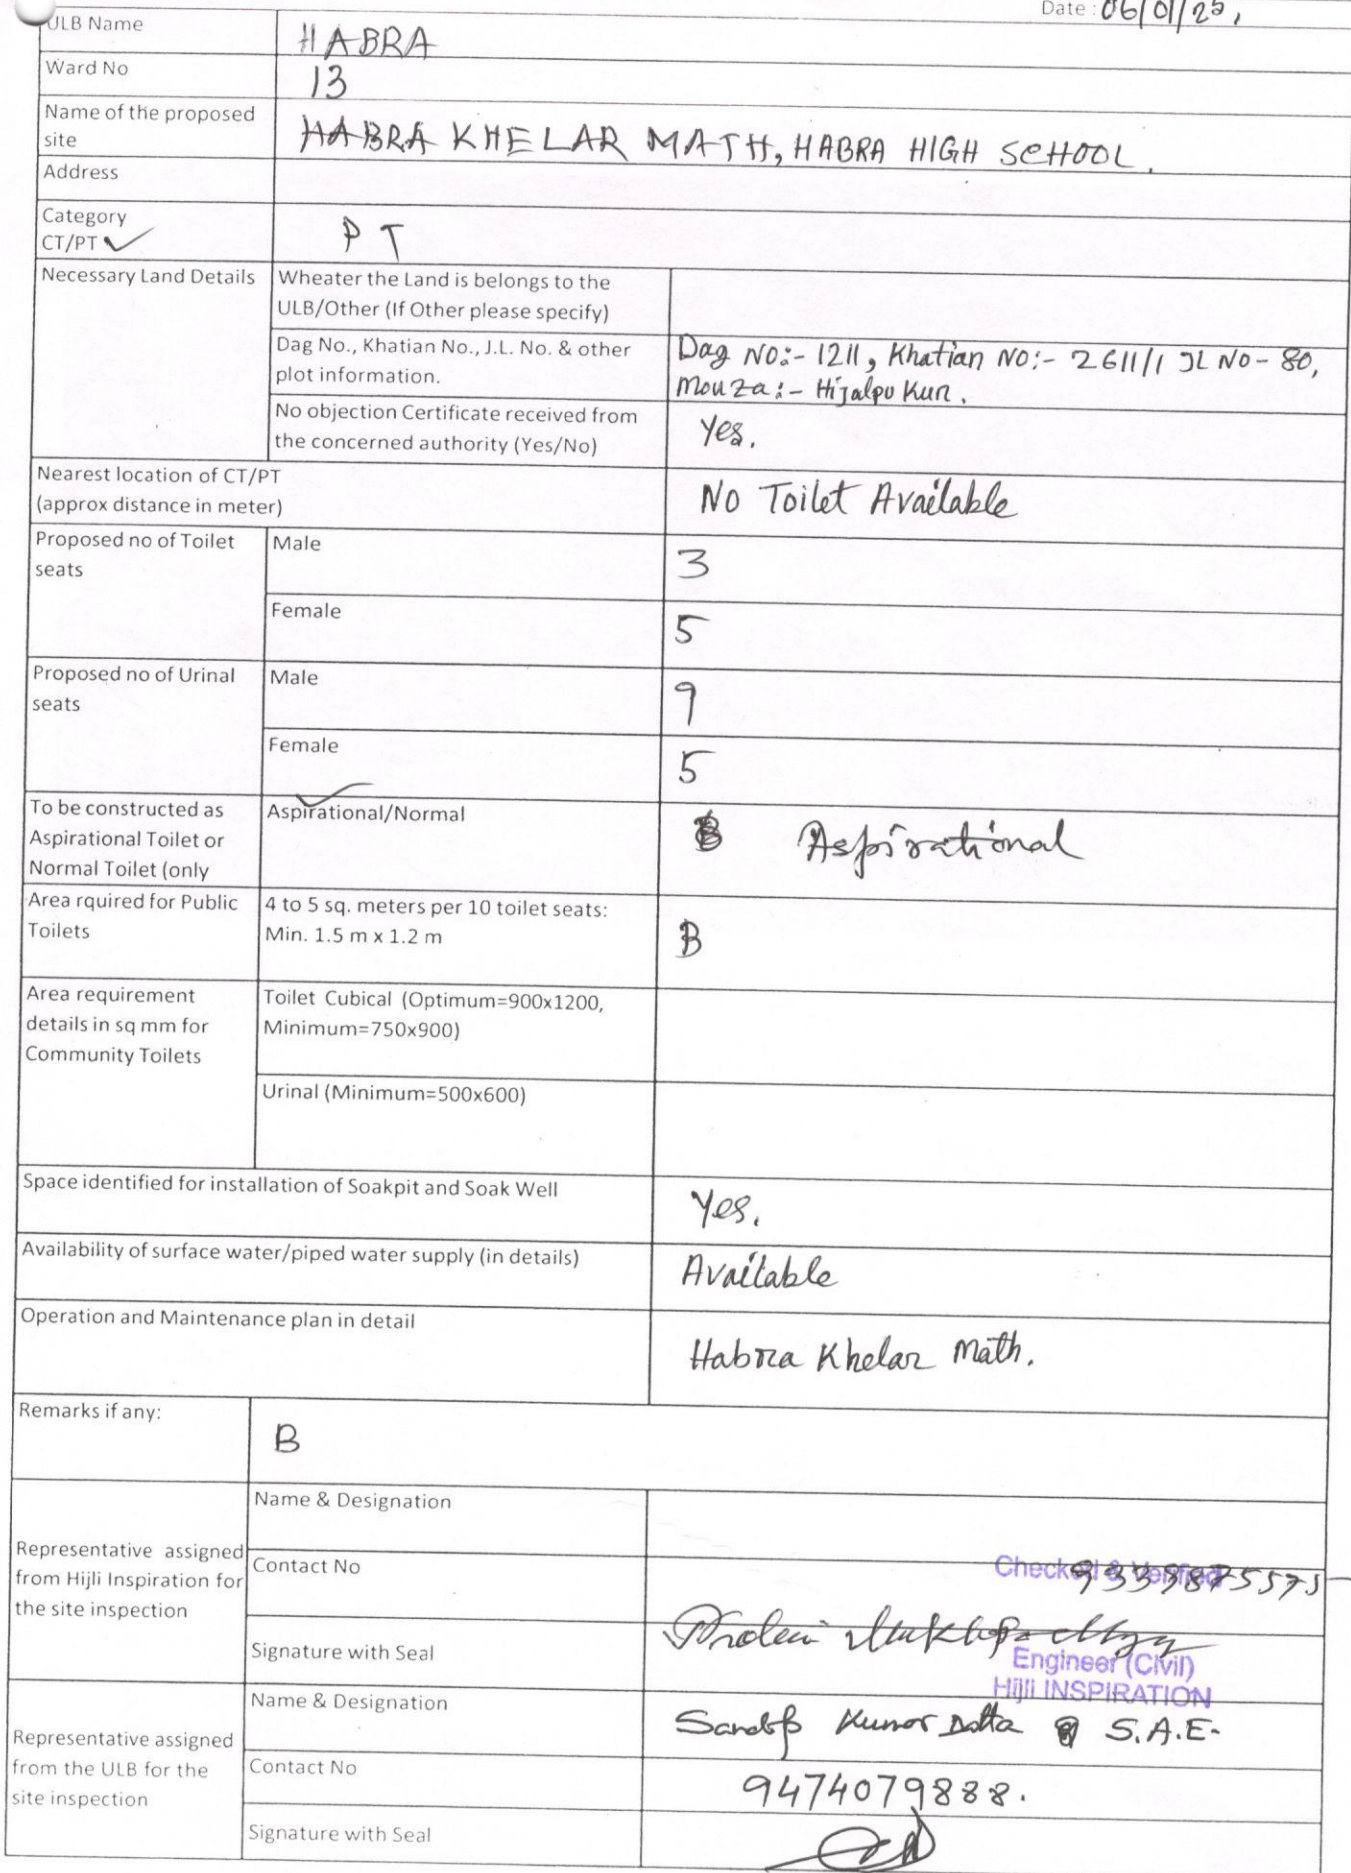 Date : 06/01/25,
ULB Name
HABRA
Ward No
13
Name of the proposed
site
HABRA KHELAR MATH, HABRA HIGH SCHOOL.
Address
Category
CT/PT ✓
PT
Necessary Land Details
Wheater the Land is belongs to the
ULB/Other (If Other please specify)
Dag No., Khatian No., J.L. No. & other
plot information.
Dag NO:- 1211, Khatian NO:- 2611/1 JL NO- 80,
Mouza:- Hijalpukur.
No objection Certificate received from
the concerned authority (Yes/No)
Yes.
Nearest location of CT/PT
(approx distance in meter)
No Toilet Available
Proposed no of Toilet
seats
Male
3
Female
5
Proposed no of Urinal
seats
Male
9
Female
5
To be constructed as
Aspirational Toilet or
Normal Toilet (only
Aspirational/Normal
Aspirational
Area rquired for Public
Toilets
4 to 5 sq. meters per 10 toilet seats:
Min. 1.5 m x 1.2 m
B
Area requirement
details in sq mm for
Community Toilets
Toilet Cubical (Optimum=900x1200,
Minimum=750x900)
Urinal (Minimum=500x600)
Space identified for installation of Soakpit and Soak Well
Yes.
Availability of surface water/piped water supply (in details)
Available
Operation and Maintenance plan in detail
Habra Khelar Math.
Remarks if any:
B
Representative assigned
from Hijli Inspiration for
the site inspection
Name & Designation
Contact No
Checked & Verified
Signature with Seal
Engineer (Civil)
Hijli INSPIRATION
Representative assigned
from the ULB for the
site inspection
Name & Designation
Kumar Datta S.A.E.
Contact No
9474079888.
Signature with Seal